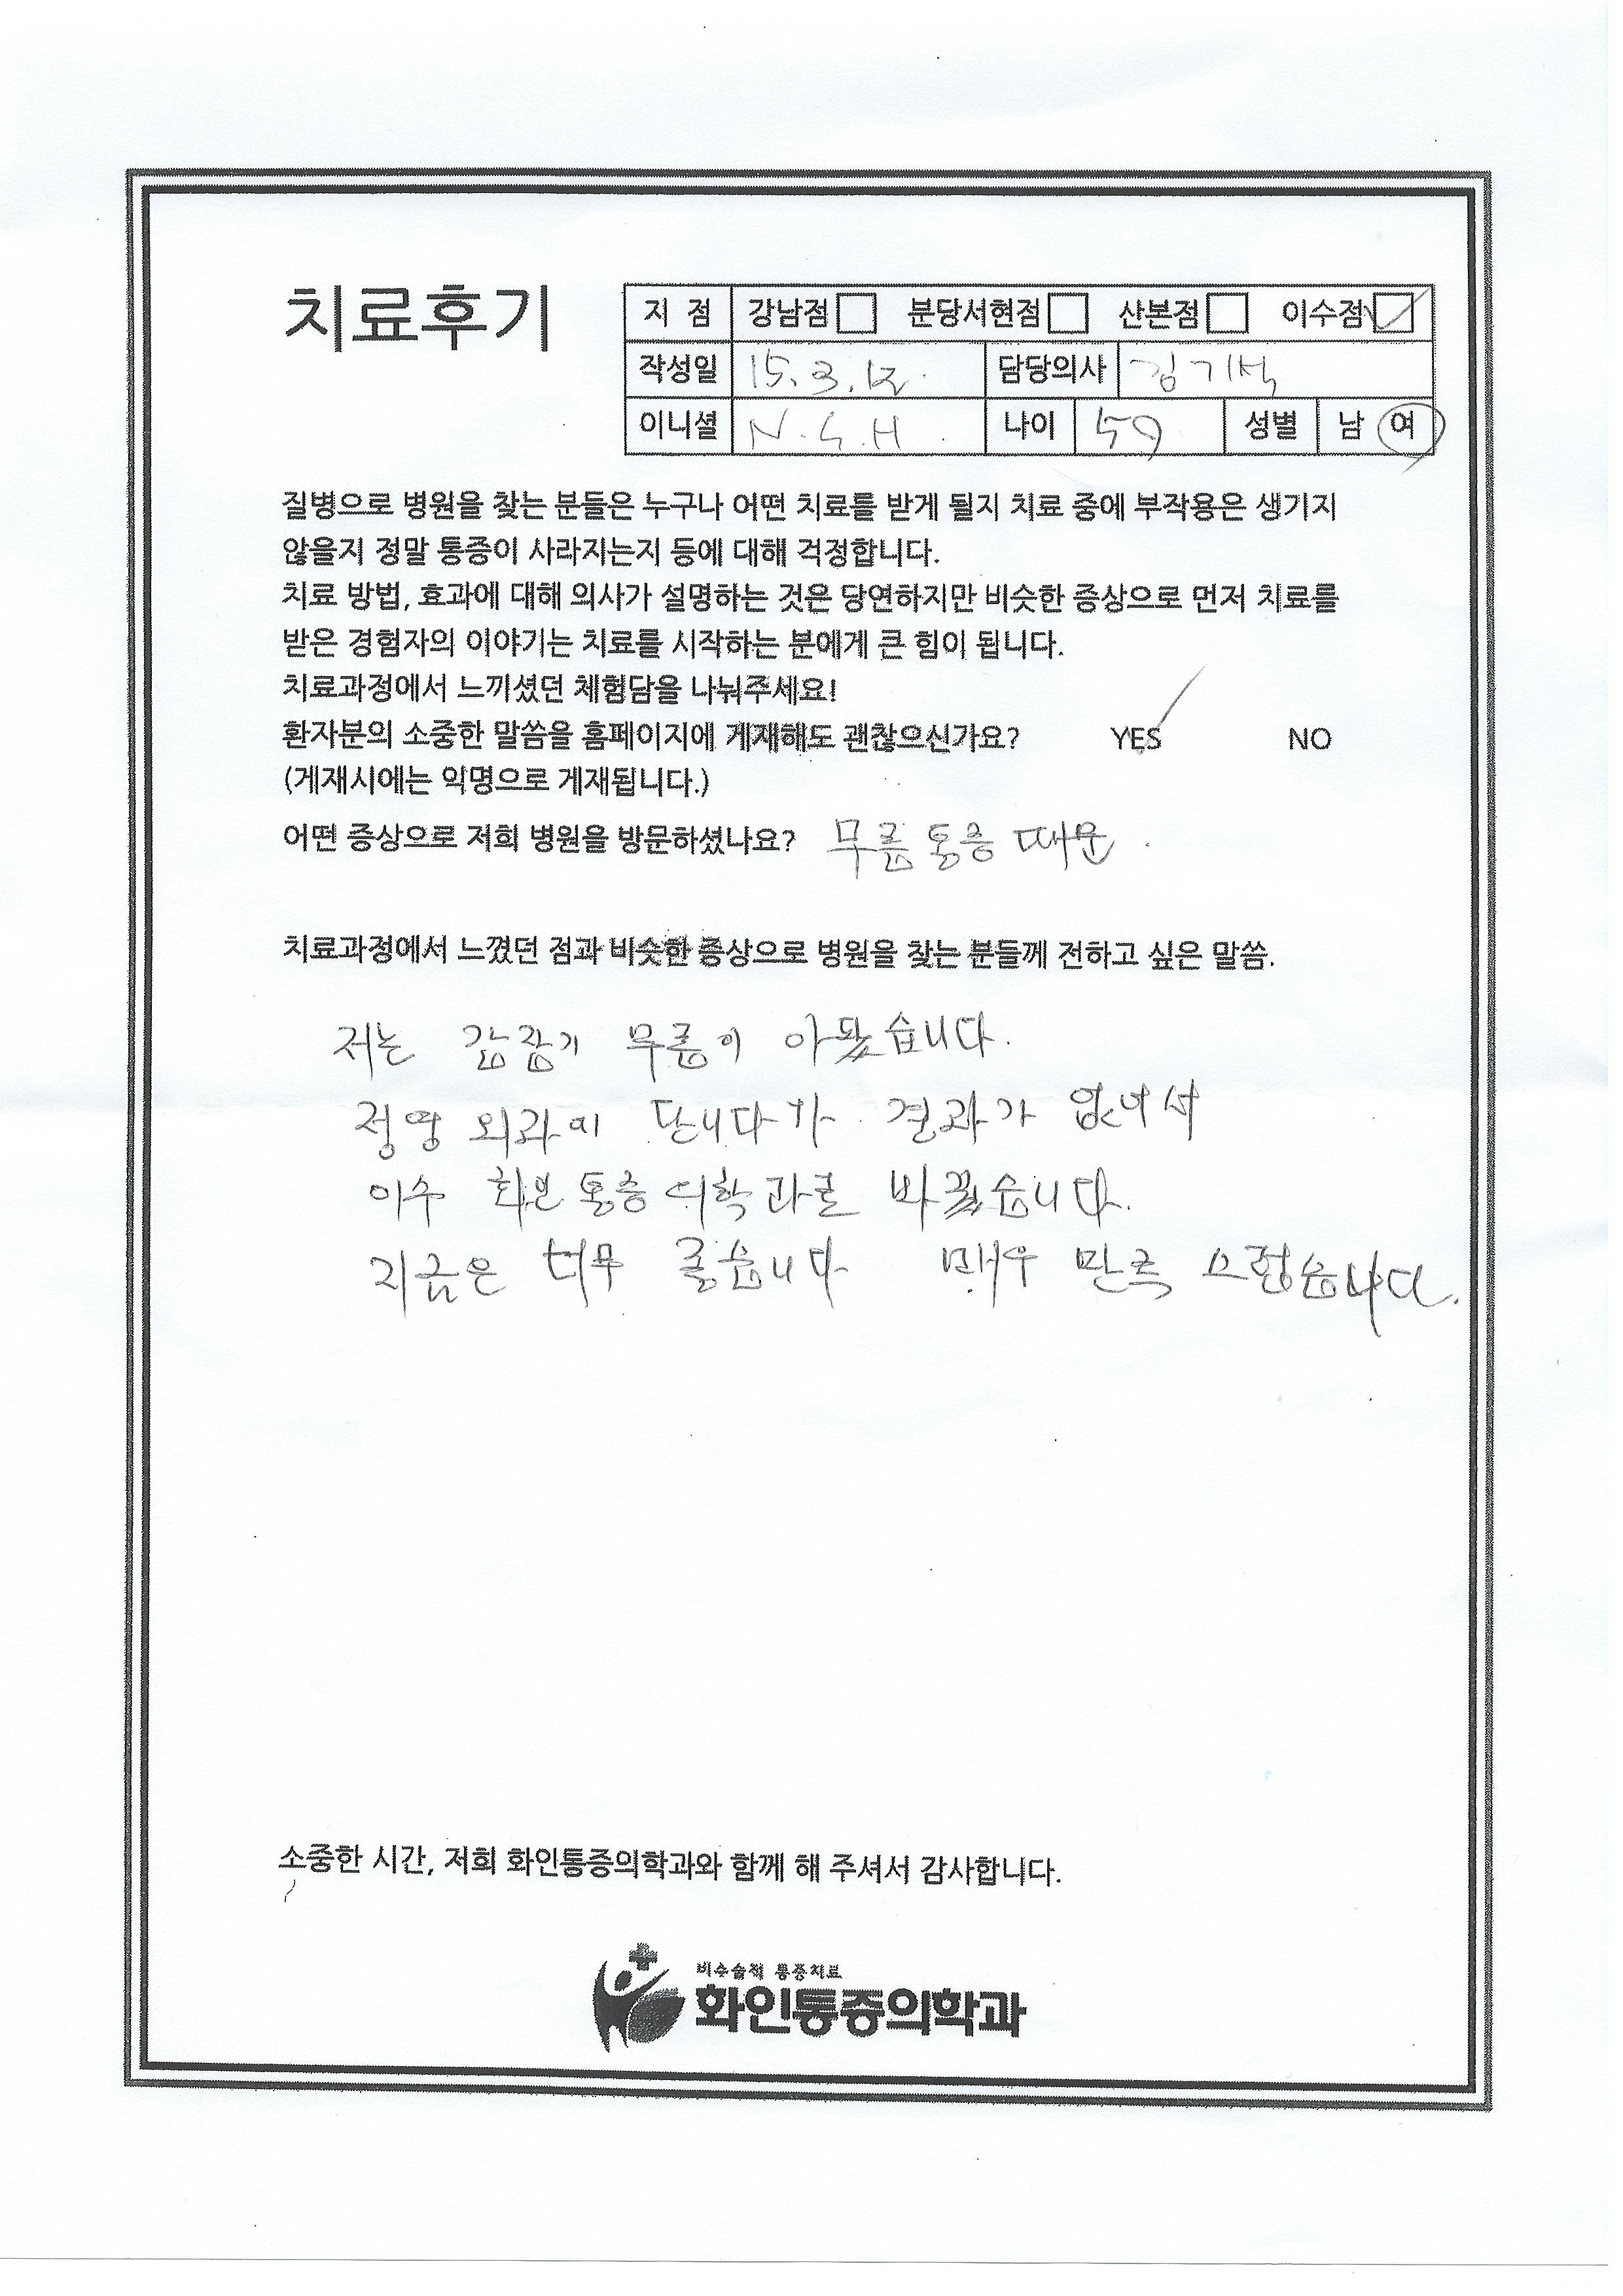 치료후기
지 점 강남점 분당서현점 산본점 이수점
작성일 15. 3. 12. 담당의사 김기석
이니셜 N. G. H. 나이 59 성별 남 여
질병으로 병원을 찾는 분들은 누구나 어떤 치료를 받게 될지 치료 중에 부작용은 생기지
않을지 정말 통증이 사라지는지 등에 대해 걱정합니다.
치료 방법, 효과에 대해 의사가 설명하는 것은 당연하지만 비슷한 증상으로 먼저 치료를
받은 경험자의 이야기는 치료를 시작하는 분에게 큰 힘이 됩니다.
치료과정에서 느끼셨던 체험담을 나눠주세요!
환자분의 소중한 말씀을 홈페이지에 게재해도 괜찮으신가요? YES NO
(게재시에는 익명으로 게재됩니다.)
어떤 증상으로 저희 병원을 방문하셨나요? 무릎 통증 때문.
치료과정에서 느꼈던 점과 비슷한 증상으로 병원을 찾는 분들께 전하고 싶은 말씀.
저는 갑잠기 무릎이 아팠습니다.
정형 외과에 단니다가 결과가 없너서
이수 화인 통증 의학과로 바꿨습니다.
지금은 너무 좋습니다 매우 만족 으럽습니다.
소중한 시간, 저희 화인통증의학과와 함께 해 주셔서 감사합니다.
비수술적 통증치료
화인통증의학과